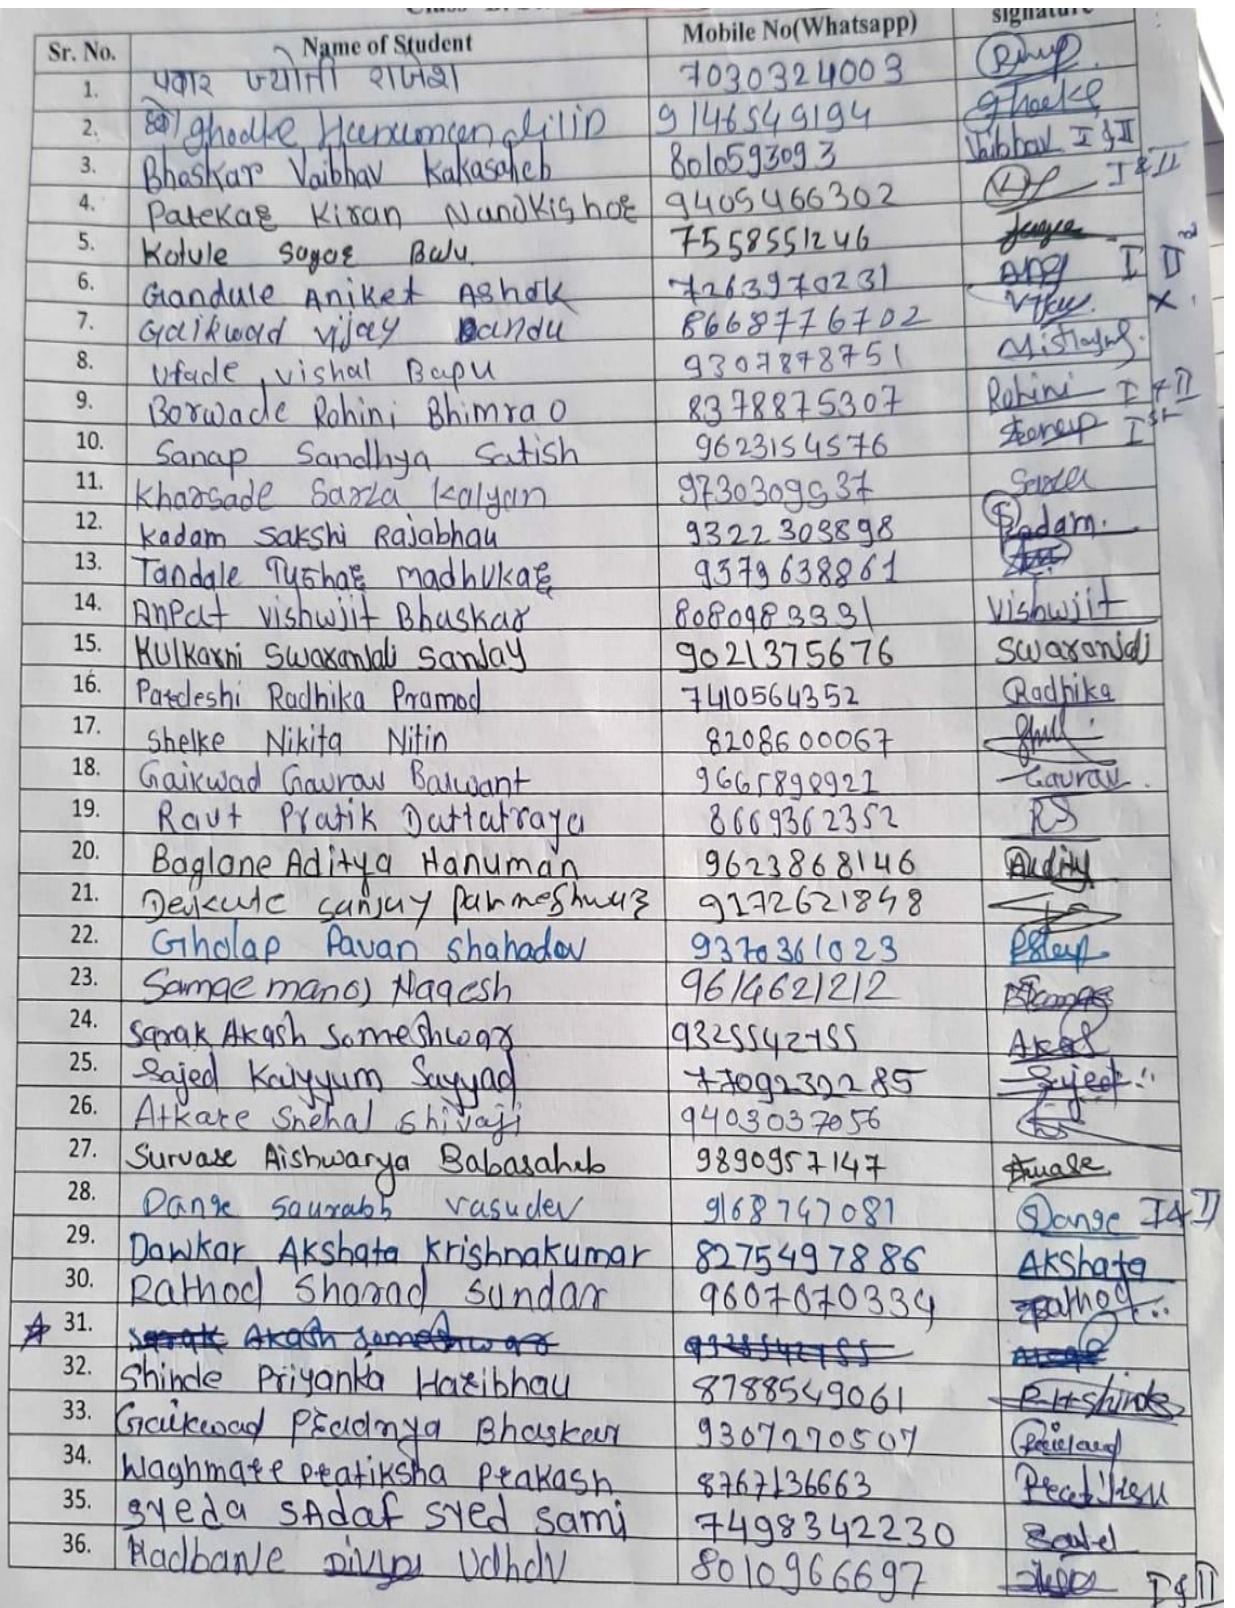 Sr. No. Name of Student Mobile No(Whatsapp) signature
1. पवार ज्योती राजेश 7030324003
2. ghodke Hanuman dilip 9146549194 Ghodke
3. Bhaskar Vaibhav Kakasaheb 801059309 3 Vaibhav I & II
4. Patekar Kiran Nandkishor 9405466302 I & II
5. Kotule Sagar Balu 7558551246
6. Gandule Aniket Ashok 7263970231 I II
7. Gaikwad vijay Bandu 8668776702 Vijay. X
8. Ufade vishal Bapu 9307878751
9. Borwade Rohini Bhimrao 8378875307 Rohini I & II
10. Sanap Sandhya Satish 9623154576 Sanap Ist
11. Kharsade Sarla Kalyan 9730309537 Sarla
12. Kadam Sakshi Rajabhau 9322303898 Kadam.
13. Tandale Tushar madhukar 9579638861
14. Anpat vishwjit Bhaskar 8080983331 Vishwjit
15. Kulkarni Swaranjali Sanjay 9021375676 Swaranjali
16. Pardeshi Radhika Pramod 7410564352 Radhika
17. Shelke Nikita Nitin 8208600067
18. Gaikwad Gaurav Balwant 9665898921 Gaurav.
19. Raut Pratik Dattatraya 8669362352 RS
20. Baglane Aditya Hanuman 9623868146 Aditya
21. Devkate sanjay parmeshwar 9172621848
22. Gholap Pavan Shahadev 9370361023
23. Samge manoj Nagesh 9614621212
24. Sarak Akash Someshwar 9325542755 Akash
25. Sajed Kaiyyum Sayyad 7709239285 Sajed
26. Atkare Snehal Shivaji 9403037056
27. Survase Aishwarya Babasaheb 9890957147
28. Dange Saurabh vasudev 9168747081 Dange I & II
29. Dawkar Akshata Krishnakumar 8275497886 Akshata
30. Rathod Sharad Sundar 9607070334 Rathod
31. Sarak Akash Someshwar 9325542755
32. Shinde Priyanka Haribhau 8788549061 P.H.shinde
33. Gaikwad Pradnya Bhaskar 9307270507
34. Waghmare pratiksha Prakash 8767136663 Pratiksha
35. Syeda Sadaf Syed Sami 7498342230 Sadaf
36. Divya Udhdv 8010966697 I & II